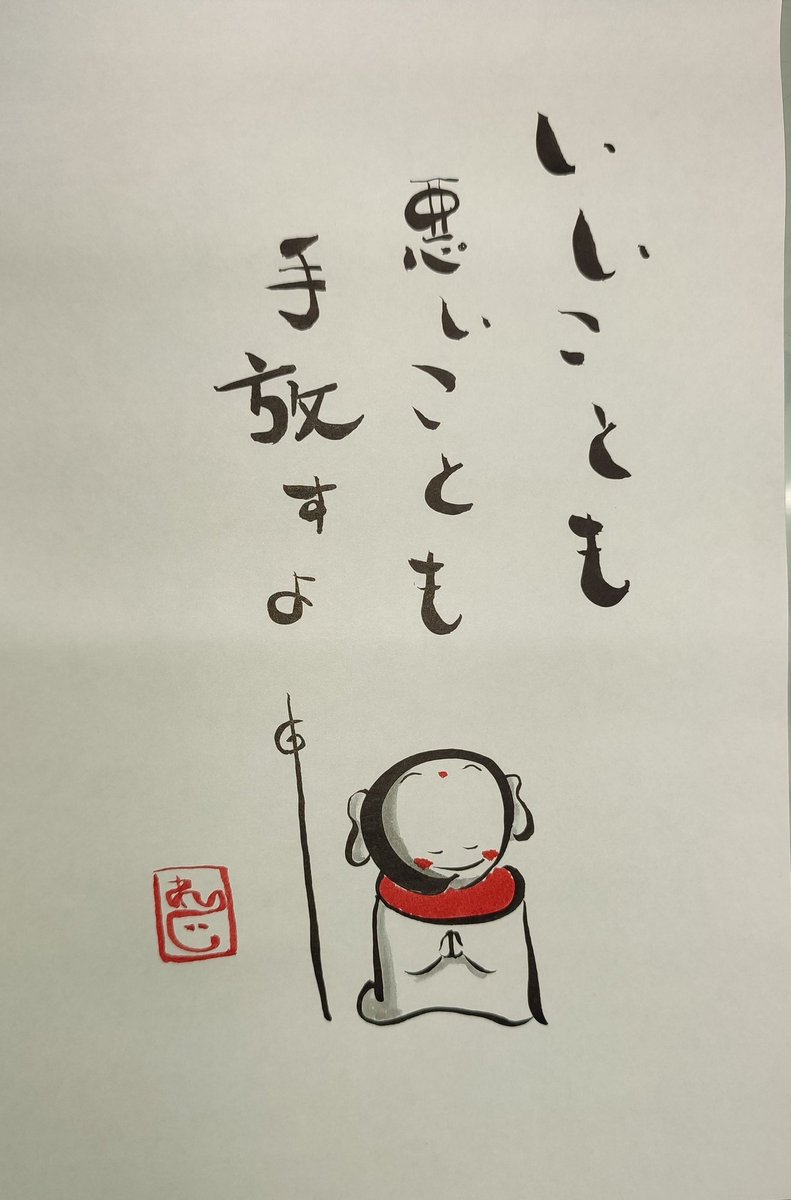 いいことも
悪いことも
手放すよ
れいじ